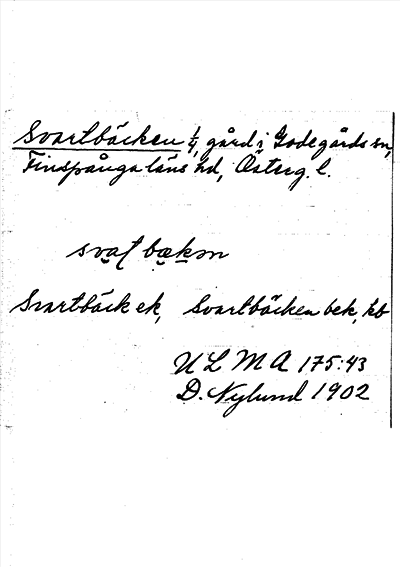 Svartbäcken 1/4, gård i Godegårds sn,
Finspånga läns hd, Österg. l.
svat bækən
Svartbäck ek, Svartbäcken bek, kb
ULMA 175:43
D. Nylund 1902